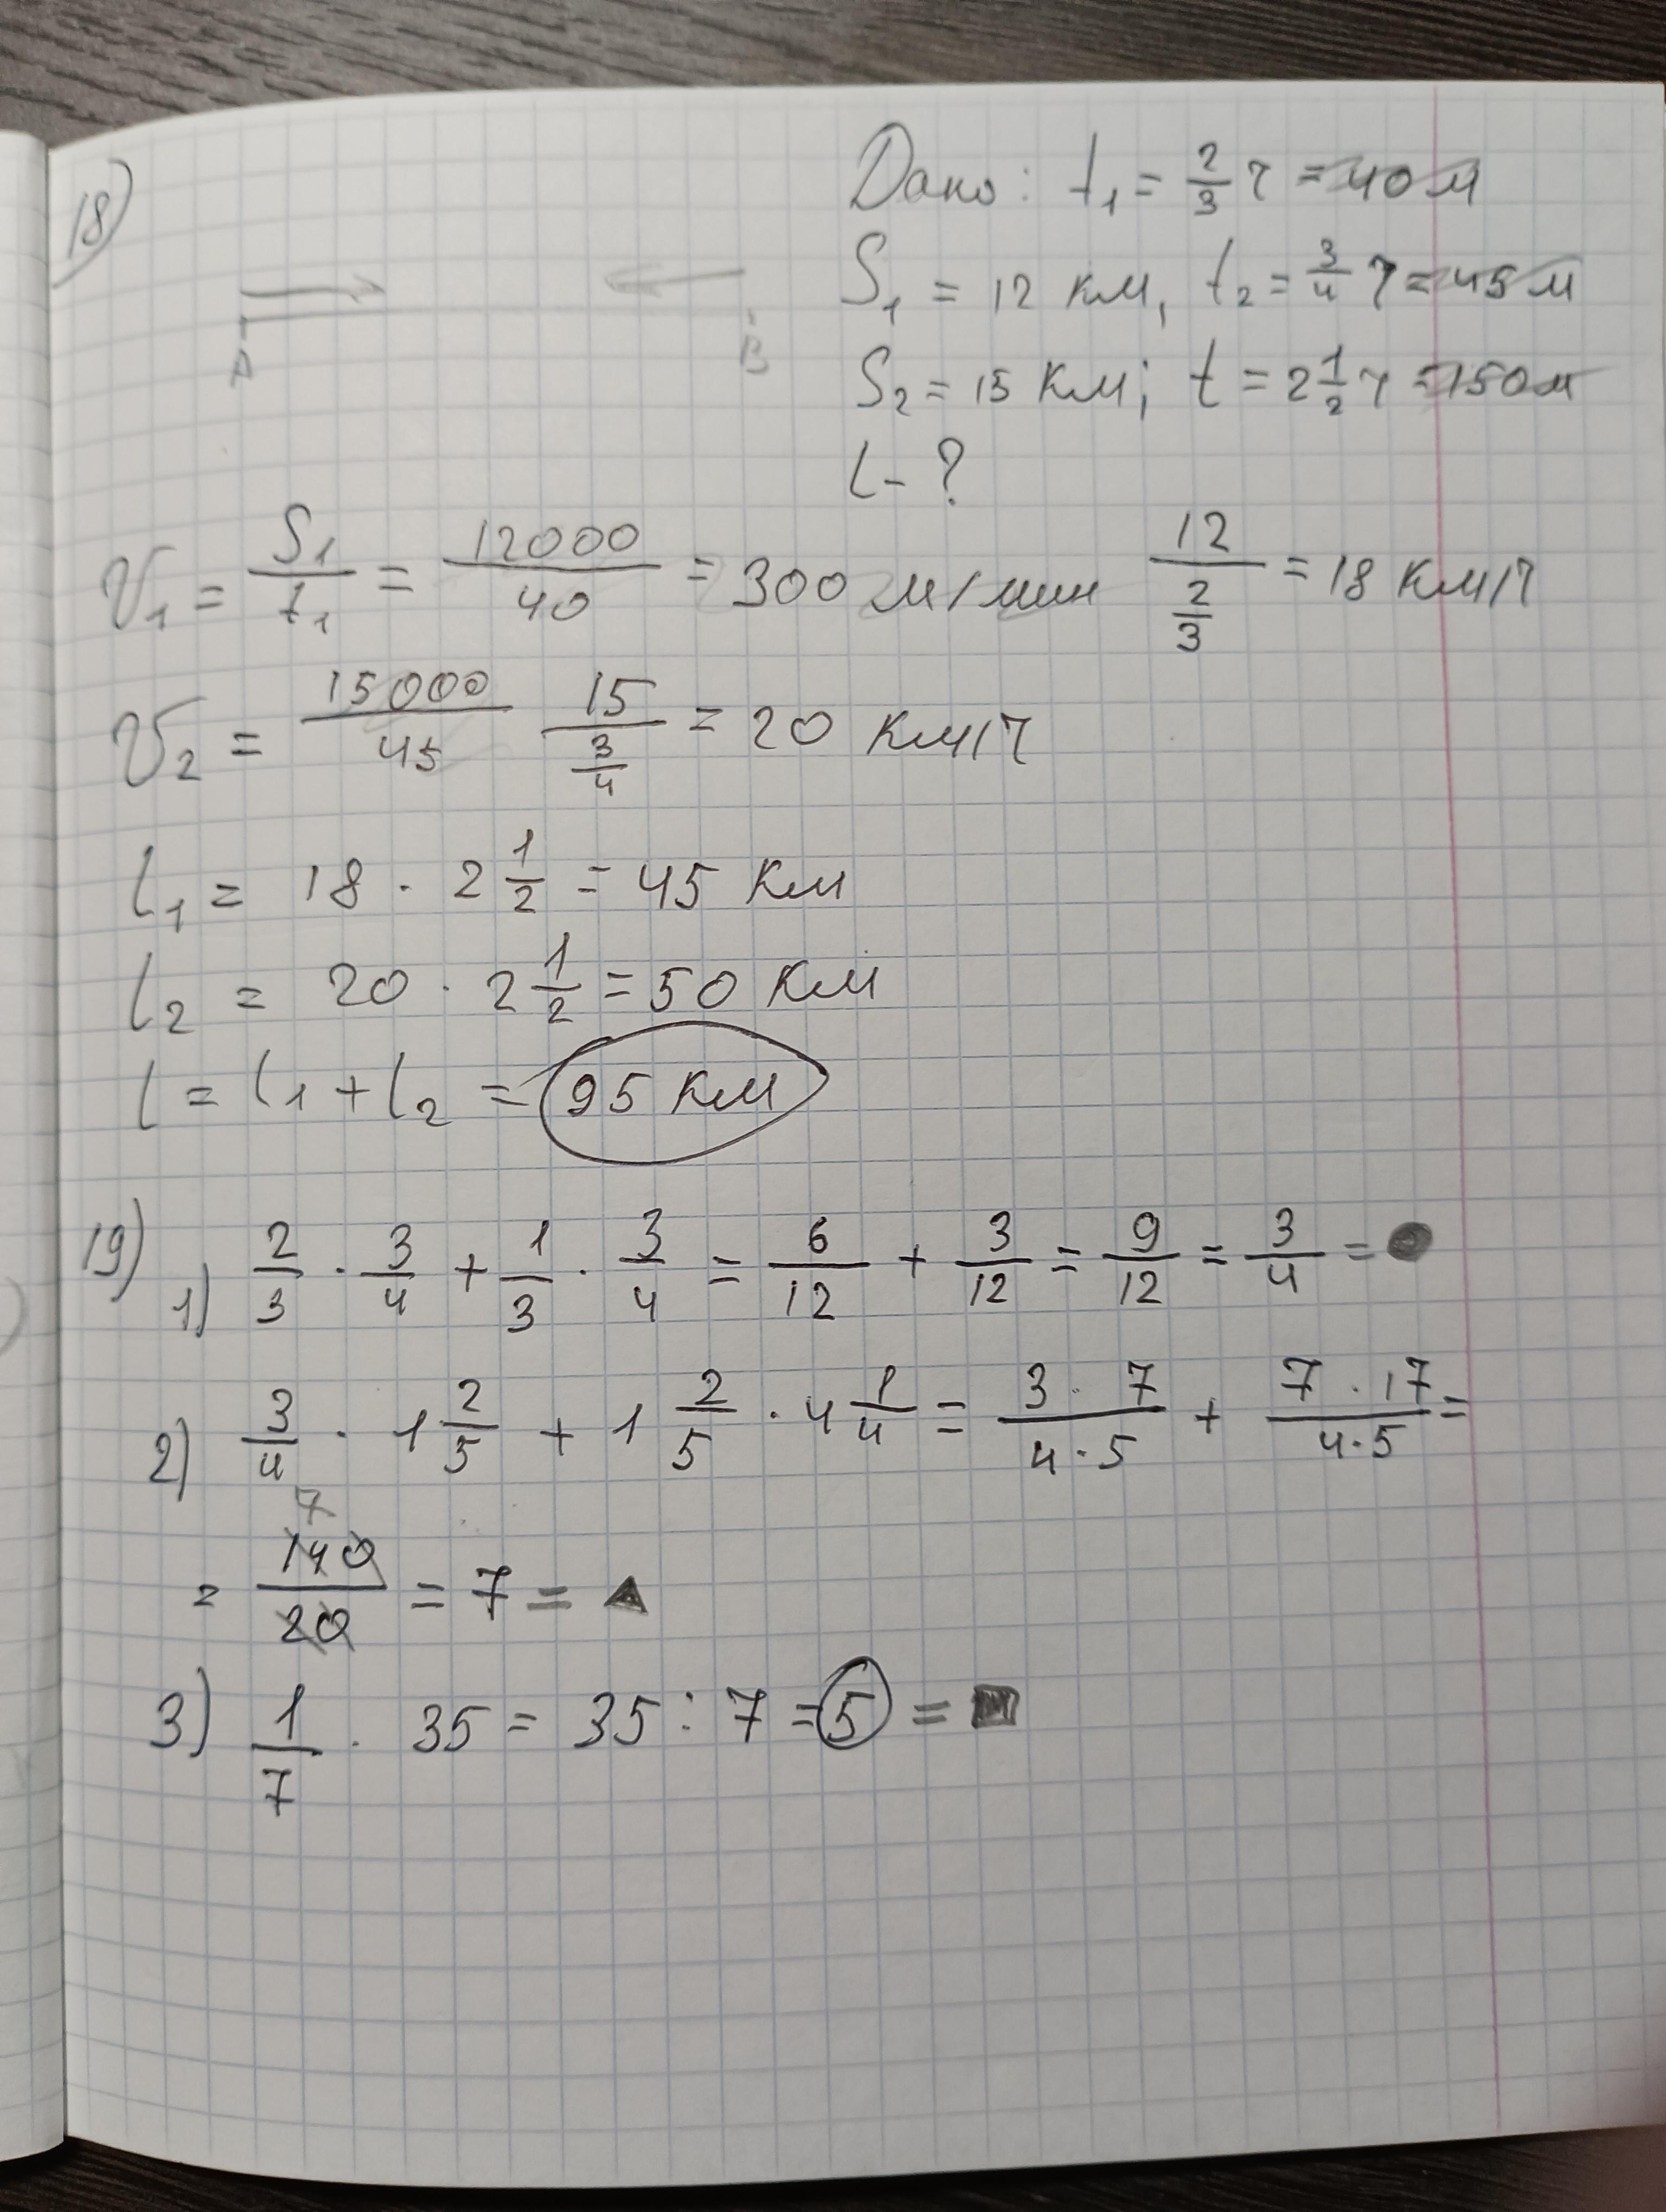 18)
Дано: t₁ = 2/3 ч = 40 м
S₁ = 12 км, t₂ = 3/4 ч = 45 м
S₂ = 15 км; t = 2 1/2 ч = 150 м
l - ?
A B
V₁ = S₁/t₁ = 12000/40 = 300 м/мин 12/(2/3) = 18 км/ч
V₂ = 15000/45 15/(3/4) = 20 км/ч
l₁ = 18 · 2 1/2 = 45 км
l₂ = 20 · 2 1/2 = 50 км
l = l₁ + l₂ = 95 км
19) 1) 2/3 · 3/4 + 1/3 · 3/4 = 6/12 + 3/12 = 9/12 = 3/4 = ●
2) 3/4 · 1 2/5 + 1 2/5 · 4 1/4 = 3·7/4·5 + 7·17/4·5 =
7
= 140/20 = 7 = ▲
3) 1/7 · 35 = 35 : 7 = 5 = ■